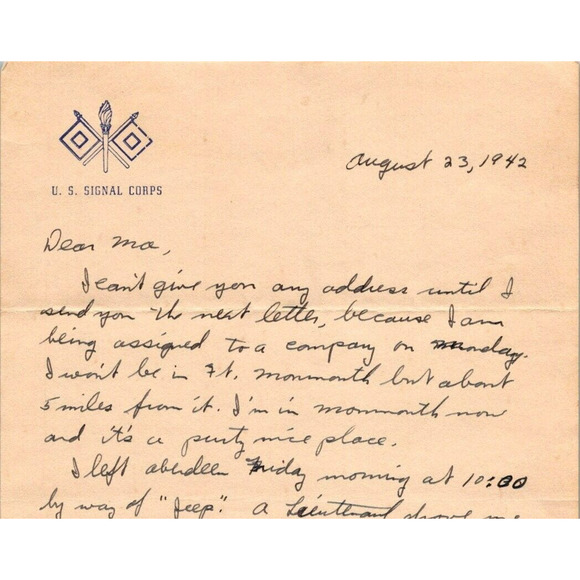 U. S. SIGNAL CORPS
August 23, 1942
Dear Ma,
I can't give you any address until I
send you the next letter, because I am
being assigned to a company on Monday.
I won't be in Ft. Monmouth but about
5 miles from it. I'm in Monmouth now
and it's a purty nice place.
I left aberdeen Friday morning at 10:00
by way of "Jeep". A Lieutenant drove me